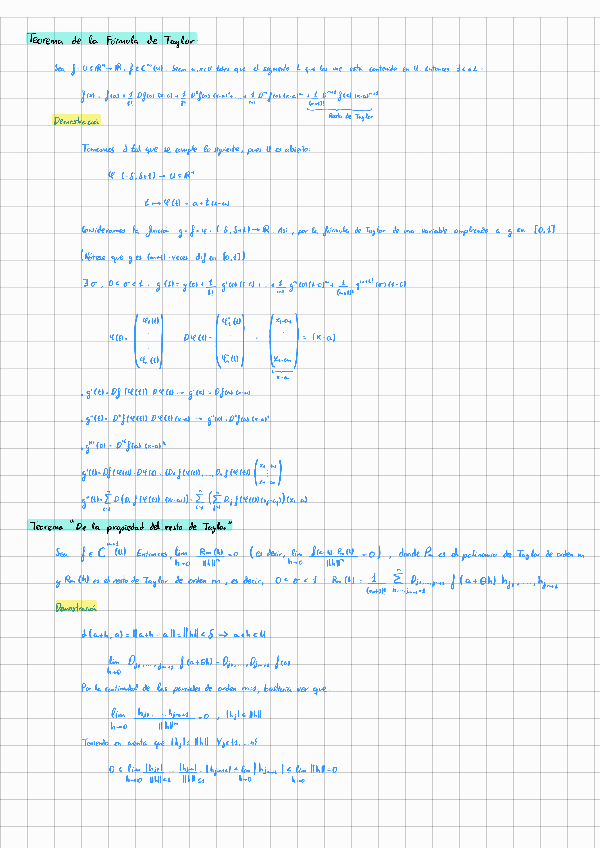 Teorema de la Fórmula de Taylor.
Sea f: U⊂ℝⁿ→ℝ, f∈C (U) Sean a, x∈U tales que el segmento L que los une está contenido en U. Entonces
f(x) = f(a) + 1/1! Df(a)(x-a) + 1/2! D²f(a)(x-a)² + ... + 1/m! Dᵐf(a)(x-a)ᵐ + 1/(m+1)! Dᵐ⁺¹f(z)(x-a)ᵐ⁺¹
Resto de Taylor
Demostración
Tomamos δ tal que se cumple lo siguiente, pues U es abierto:
φ: (-δ, δ+1) → U⊂ℝⁿ
t ↦ φ(t) = a + t(x-a)
Consideramos la función g = f∘φ: (-δ, δ+1) → ℝ. Así, por la fórmula de Taylor de una variable aplicada a g en [0,1]
(Nótese que g es (m+1)-veces dif en [0,1])
∃σ, 0<σ<1 : g(1) = g(0) + 1/1! g'(0)(1-0) + ... + 1/m! gᵐ(0)(1-0)ᵐ + 1/(m+1)! g⁽ᵐ⁺¹⁾(σ)(1-0)
φ(t) = (φ₁(t) ... φₙ(t)) Dφ(t) = (φ₁'(t) ... φₙ'(t)) = (x₁-a₁ ... xₙ-aₙ) = [x-a]
x-a
. g'(t) = Df(φ(t)) Dφ(t) → g'(0) = Df(a)(x-a)
. g''(t) = D²f(φ(t)) Dφ(t)(x-a) → g''(0) = D²f(a)(x-a)²
. (0) = D f(a)(x-a)
g'(t) = Df(φ(t)) · Dφ(t) = (D₁f(φ(t)), ..., Dₙf(φ(t))) (x₁-a₁ ... xₙ-aₙ)
g''(t) = Σ D(Dᵢf(φ(t))(x-a)) = Σ (Σ Dᵢⱼf(φ(t))(xⱼ-aⱼ))(xᵢ-aᵢ)
Teorema "De la propiedad del resto de Taylor"
Sea f∈C ᵐ⁺¹(U) Entonces, lim h→0 Rm(h)/‖h‖ᵐ = 0 (es decir, lim h→0 f(a+h)-Pm(h)/‖h‖ᵐ = 0), donde Pm es el polinomio de Taylor de orden m
y Rm(h) es el resto de Taylor de orden m, es decir, 0<σ<1 Rm(h) = 1/(m+1)! Σ Dj₁,...,jm+1 f(a+θh) hj₁, ..., hjm+1
Demostración
d(a+h, a) = ‖a+h-a‖ = ‖h‖ < δ → a+h∈U
lim h→0 Dj₁, ..., jm+1 f(a+θh) = Dj₁, ..., Djm+1 f(a)
Por la continuidad de las parciales de orden m+1, bastaría ver que
lim h→0 hj₁ ... hjm+1/‖h‖ᵐ = 0 , |hj| ≤ ‖h‖
Teniendo en cuenta que |hj| ≤ ‖h‖ ∀j∈{1...n}
0 ≤ lim h→0 |hj₁|/‖h‖≤1 ... |hjm|/‖h‖≤1 · |hjm+1| ≤ lim h→0 |hjm+1| ≤ lim h→0 ‖h‖ = 0